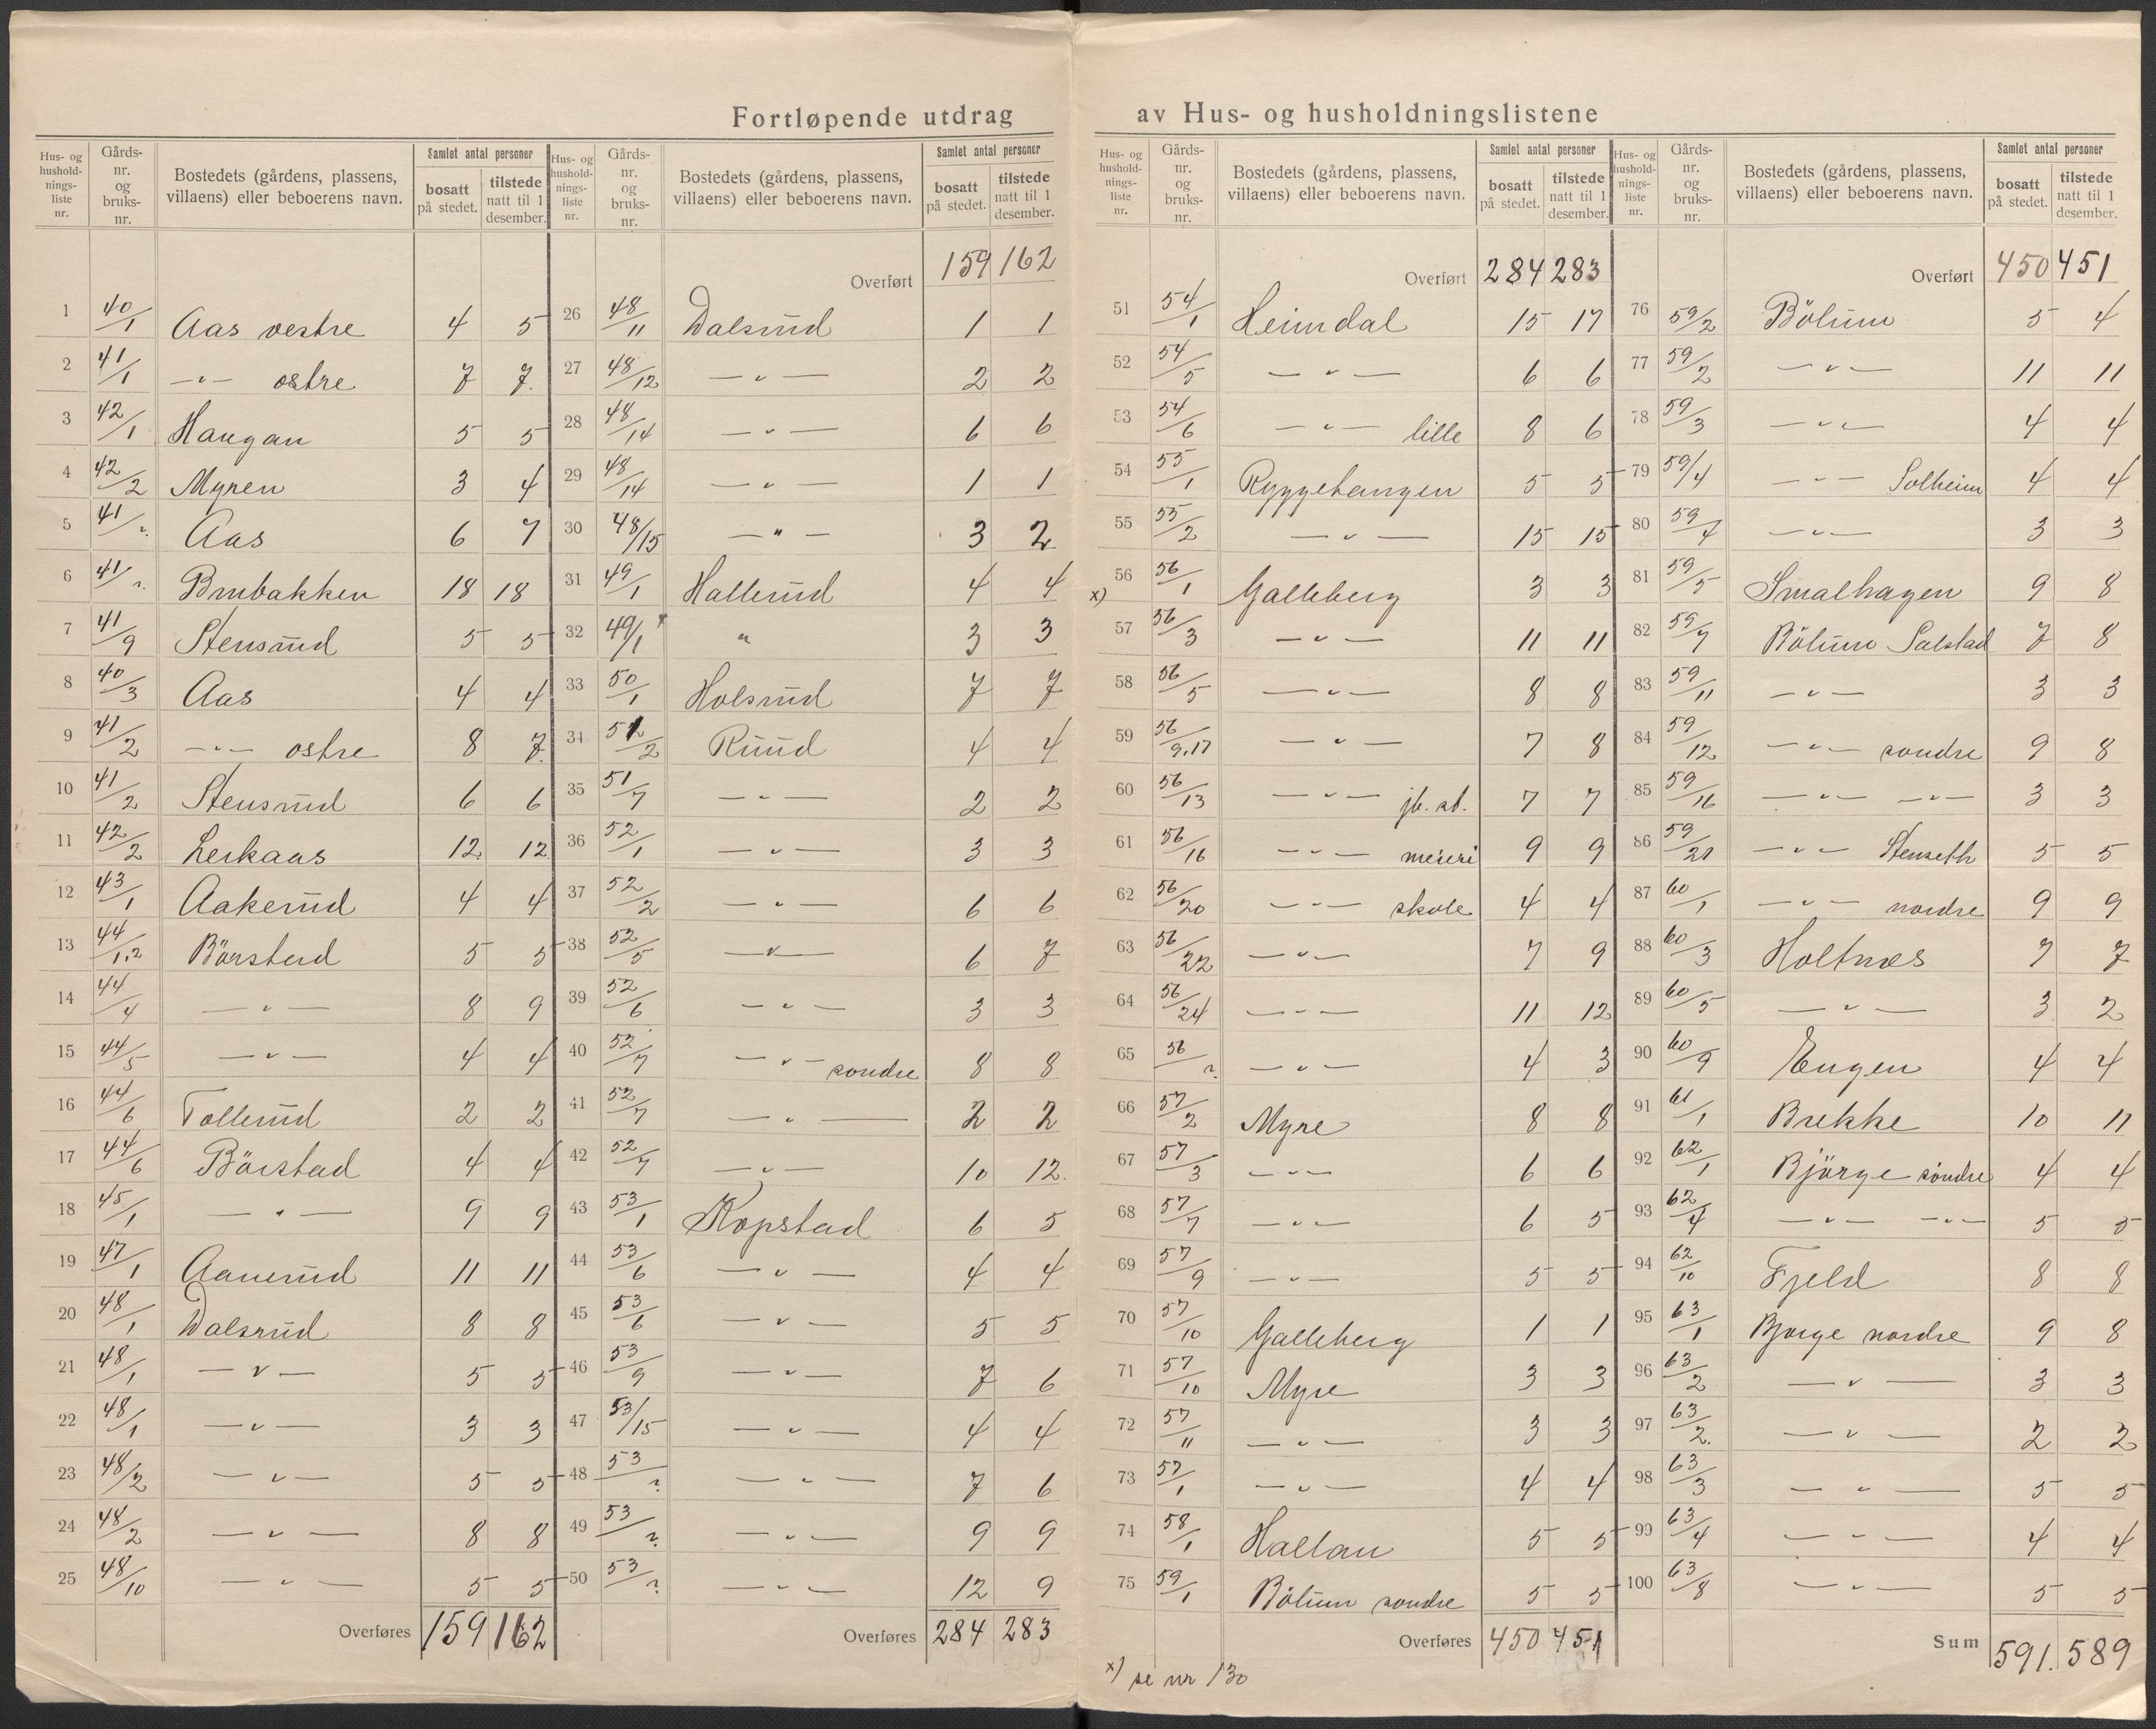 Fortløpende utdrag av Hus- og husholdningslistene
Hus- og husholdnings-liste nr. | Gårds-nr. og bruks-nr. | Bostedets (gårdens, plassens, villaens) eller beboerens navn. | Samlet antal personer: bosatt på stedet. | tilstede natt til 1 desember.
1 40/1 Aas vestre 4 5
2 41/1 —"— ostre 7 7
3 42/1 Haugan 5 5
4 42/2 Myren 3 4
5 41/? Aas 6 7
6 41/? Brubakken 18 18
7 41/9 Stensrud 5 5
8 40/3 Aas 4 4
9 41/2 —"— ostre 8 7
10 41/2 Stensrud 6 6
11 42/2 Lerkaas 12 12
12 43/1 Aakerud 4 4
13 44/1,2 Börstad 5 5
14 44/4 —"— 8 9
15 44/5 —"— 4 4
16 44/6 Tollerud 2 2
17 44/6 Börstad 4 4
18 45/1 —"— 9 9
19 47/1 Aanerud 11 11
20 48/1 Dalsrud 8 8
21 48/1 —"— 5 5
22 48/1 —"— 3 3
23 48/2 —"— 5 5
24 48/2 —"— 8 8
25 48/10 —"— 5 5
Overføres 159 162
Hus- og husholdnings-liste nr. | Gårds-nr. og bruks-nr. | Bostedets (gårdens, plassens, villaens) eller beboerens navn. | Samlet antal personer: bosatt på stedet. | tilstede natt til 1 desember.
Overført 159 162
26 48/11 Dalsrud 1 1
27 48/12 —"— 2 2
28 48/14 —"— 6 6
29 48/14 —"— 1 1
30 48/15 —"— 3 2
31 49/1 Hallerud 4 4
32 49/1 " 3 3
33 50/1 Holsrud 7 7
34 51/2 Ruud 4 4
35 51/7 —"— 2 2
36 52/1 —"— 3 3
37 52/2 —"— 6 6
38 52/5 —"— 6 7
39 52/6 —"— 3 3
40 52/7 —"— sondre 8 8
41 52/7 —"— 2 2
42 52/7 —"— 10 12
43 53/1 Kopstad 6 5
44 53/6 —"— 4 4
45 53/6 —"— 5 5
46 53/9 —"— 7 6
47 53/15 —"— 4 4
48 53/? —"— 7 6
49 53/? —"— 9 9
50 53/? —"— 12 9
Overføres 284 283
Hus- og husholdnings-liste nr. | Gårds-nr. og bruks-nr. | Bostedets (gårdens, plassens, villaens) eller beboerens navn. | Samlet antal personer: bosatt på stedet. | tilstede natt til 1 desember.
Overført 284 283
51 54/1 Heimdal 15 17
52 54/5 —"— 6 6
53 54/6 —"— lille 8 6
54 55/1 Ryggehaugen 5 5
55 55/2 —"— 15 15
x) 56 56/1 Galleberg 3 3
57 56/3 —"— 11 11
58 56/5 —"— 8 8
59 56/9,17 —"— 7 8
60 56/13 —"— jb. st. 7 7
61 56/16 —"— meieri 9 9
62 56/20 —"— skole 4 4
63 56/22 —"— 7 9
64 56/24 —"— 11 12
65 56/? —"— 4 3
66 57/2 Myre 8 8
67 57/3 —"— 6 6
68 57/7 —"— 6 5
69 57/9 —"— 5 5
70 57/10 Galleberg 1 1
71 57/10 Myre 3 3
72 57/11 —"— 3 3
73 57/1 —"— 4 4
74 58/1 Hallan 5 5
75 59/1 Bölum sondre 5 5
Overføres 450 451
x) se nr 130
Hus- og husholdnings-liste nr. | Gårds-nr. og bruks-nr. | Bostedets (gårdens, plassens, villaens) eller beboerens navn. | Samlet antal personer: bosatt på stedet. | tilstede natt til 1 desember.
Overført 450 451
76 59/2 Bölum 5 4
77 59/2 —"— 11 11
78 59/3 —"— 4 4
79 59/4 —"— Solheim 4 4
80 59/4 —"— 3 3
81 59/5 Smalhagen 9 8
82 59/7 Bölum Solstad 7 8
83 59/11 —"— 3 3
84 59/12 —"— sondre 9 8
85 59/16 —"— —"— 3 3
86 59/21 —"— Stenseth 5 5
87 60/1 —"— nordre 9 9
88 60/3 Holtnæs 7 7
89 60/5 —"— 3 2
90 60/9 Engen 4 4
91 61/1 Brekke 10 11
92 62/1 Bjørge söndre 4 4
93 62/4 —"— —"— 5 5
94 62/10 Fjeld 8 8
95 63/1 Bjorge nordre 9 8
96 63/2 —"— 3 3
97 63/2 —"— 2 2
98 63/3 —"— 5 5
99 63/4 —"— 4 4
100 63/8 —"— 5 5
Sum 591 589